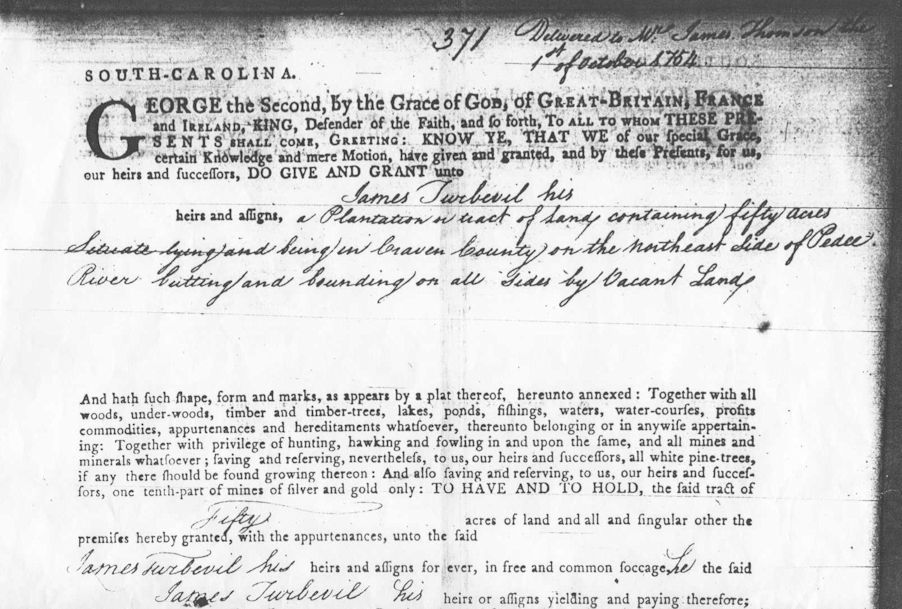 371 Delivered to Mr. James Thomson the
1st of October 1754
SOUTH-CAROLINA.
GEORGE the Second, by the Grace of GOD, of GREAT-BRITAIN, FRANCE
and IRELAND, KING, Defender of the Faith, and ſo forth, TO ALL TO WHOM THESE PRE-
SENTS SHALL COME, GREETING: KNOW YE, THAT WE of our ſpecial Grace,
certain Knowledge and mere Motion, have given and granted, and by theſe Preſents, for us,
our heirs and ſucceſſors, DO GIVE AND GRANT unto
James Turbevil his
heirs and aſſigns, a Plantation or tract of Land, containing fifty acres
Situate lying and being in Craven County on the Northeast Side of Pedee
River butting and bounding on all Sides by Vacant Land
And hath ſuch ſhape, form and marks, as appears by a plat thereof, hereunto annexed: Together with all
woods, under-woods, timber and timber-trees, lakes, ponds, fiſhings, waters, water-courſes, profits
commodities, appurtenances and hereditaments whatſoever, thereunto belonging or in anywiſe appertain-
ing: Together with privilege of hunting, hawking and fowling in and upon the ſame, and all mines and
minerals whatſoever; ſaving and reſerving, nevertheleſs, to us, our heirs and ſucceſſors, all white pine-trees,
if any there ſhould be found growing thereon: And alſo ſaving and reſerving, to us, our heirs and ſucceſ-
ſors, one tenth-part of mines of ſilver and gold only: TO HAVE AND TO HOLD, the ſaid tract of
Fifty acres of land and all and ſingular other the
premiſes hereby granted, with the appurtenances, unto the ſaid
James Turbevil his heirs and aſſigns for ever, in free and common ſoccage, he the ſaid
James Turbevil his heirs or aſſigns yielding and paying therefore;